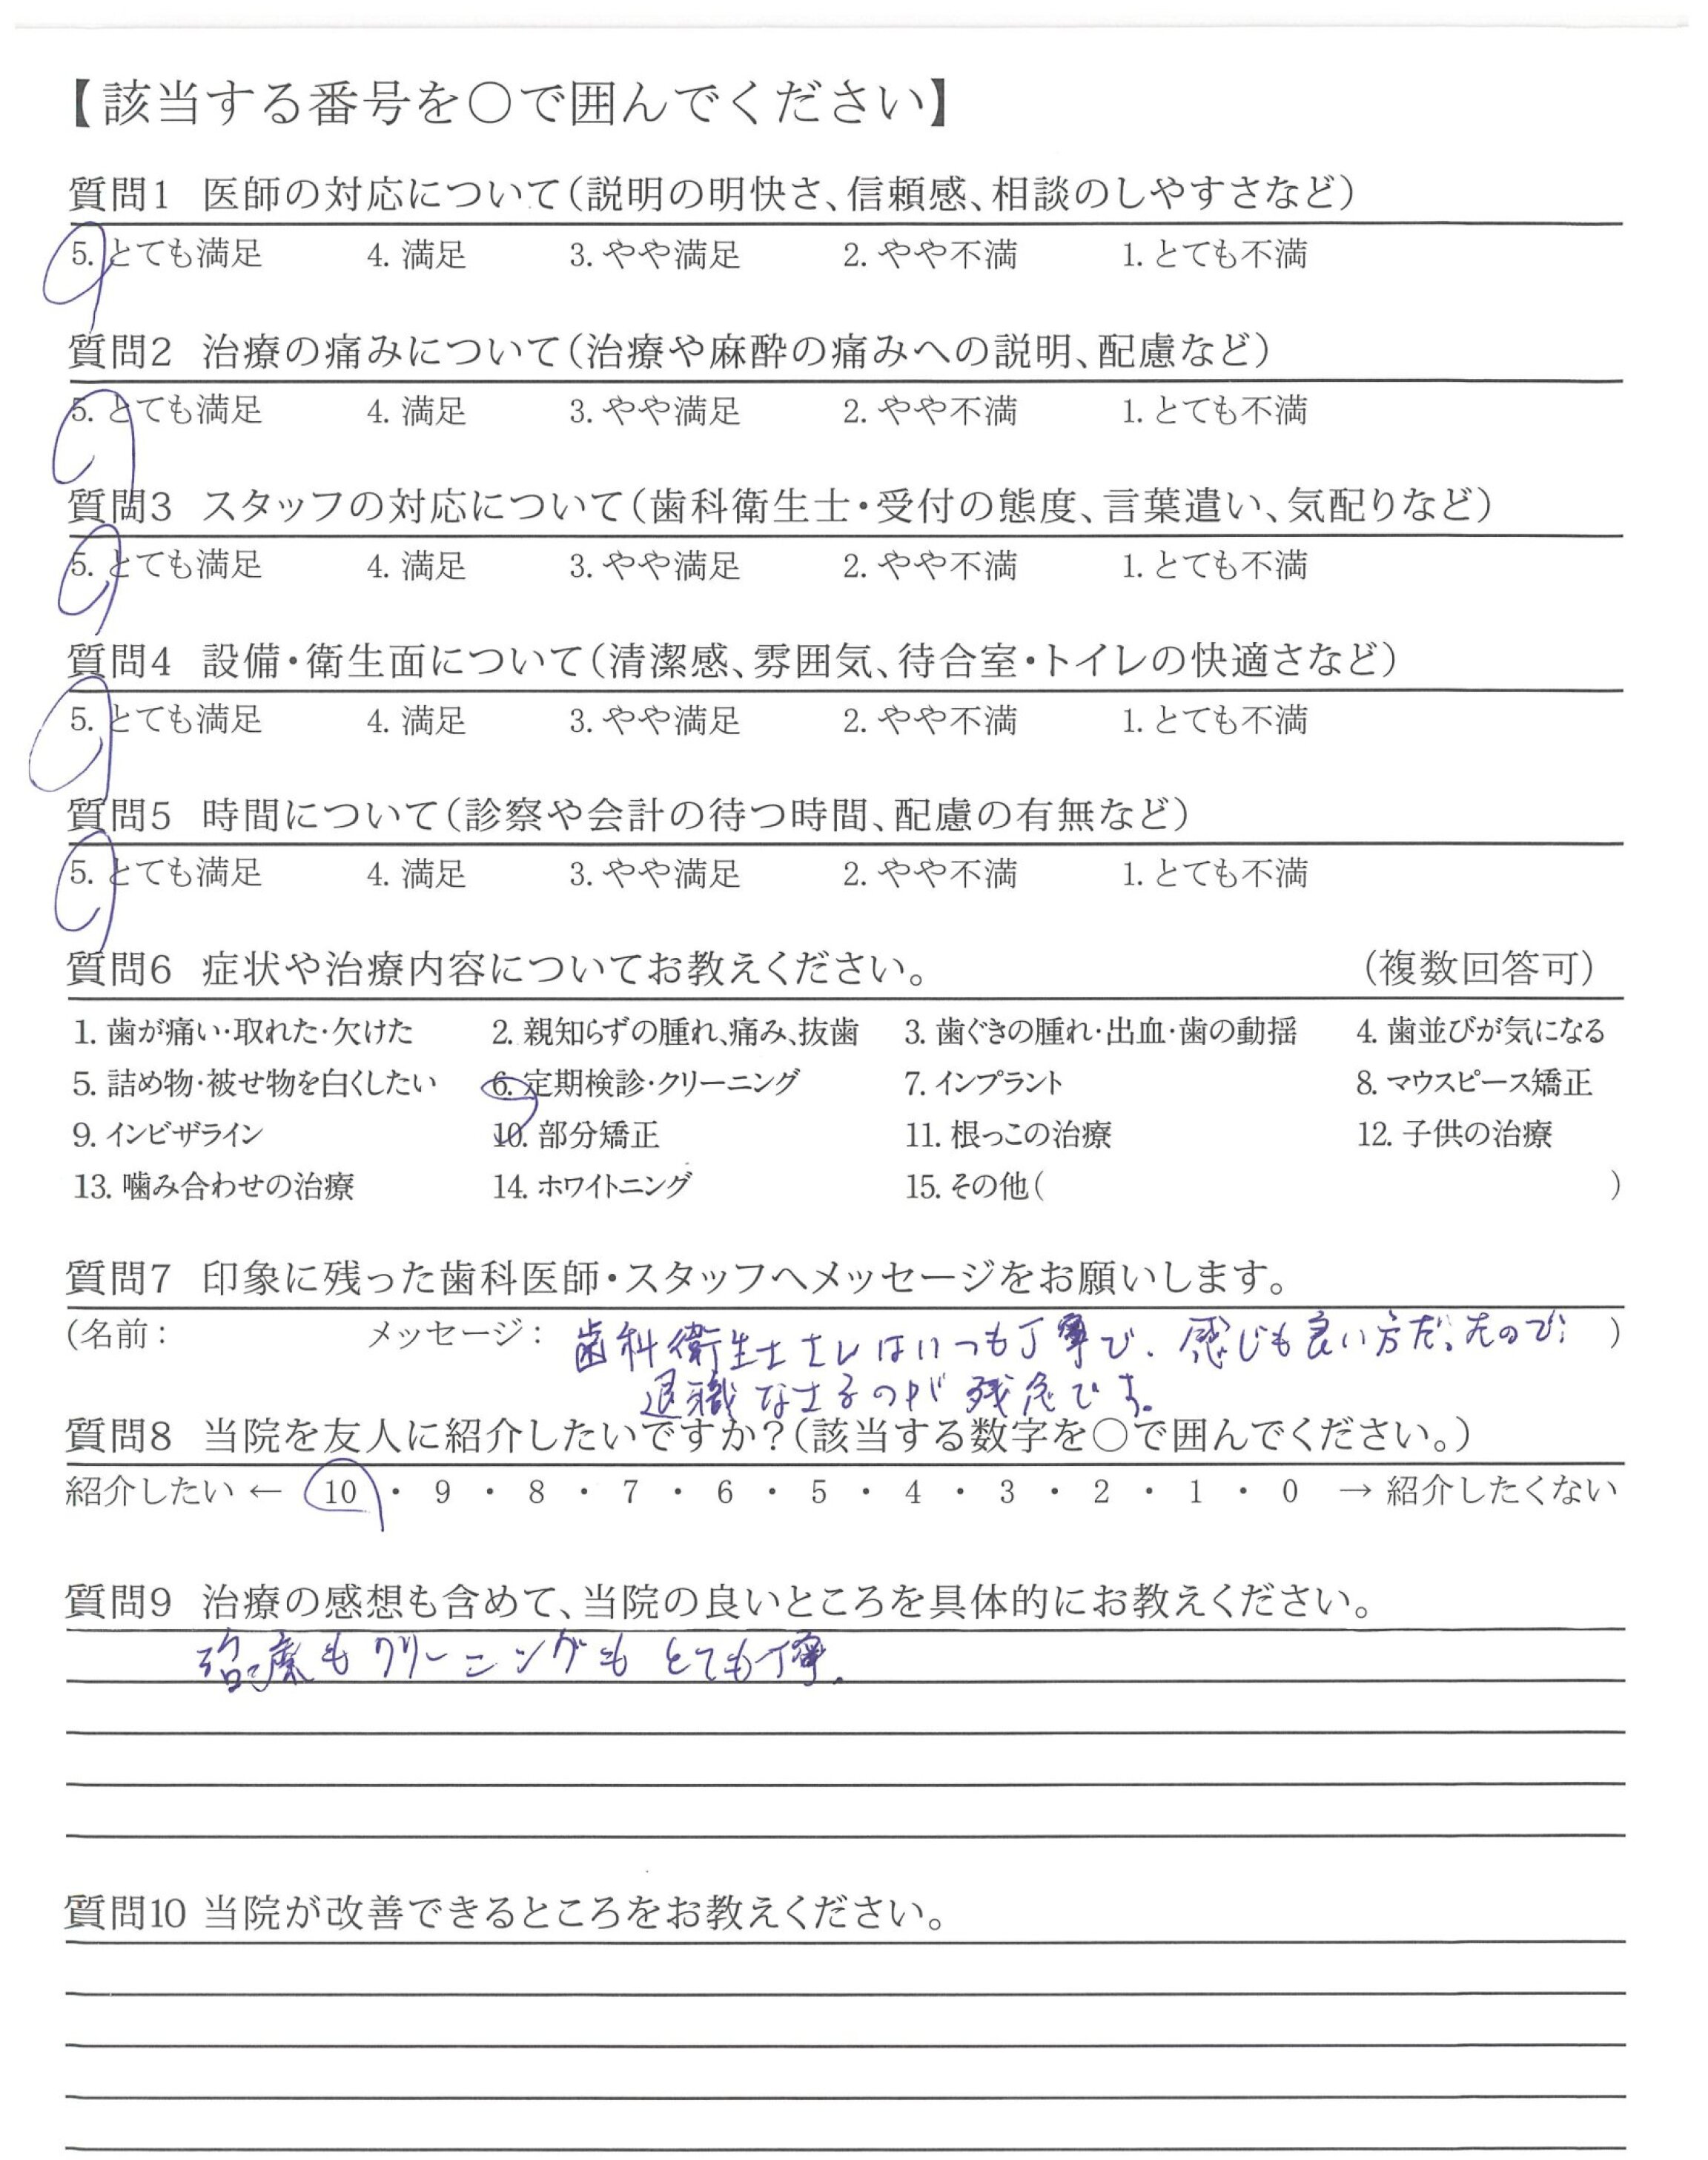 【該当する番号を○で囲んでください】
質問1 医師の対応について(説明の明快さ、信頼感、相談のしやすさなど)
5. とても満足 4. 満足 3. やや満足 2. やや不満 1. とても不満
質問2 治療の痛みについて(治療や麻酔の痛みへの説明、配慮など)
5. とても満足 4. 満足 3. やや満足 2. やや不満 1. とても不満
質問3 スタッフの対応について(歯科衛生士・受付の態度、言葉遣い、気配りなど)
5. とても満足 4. 満足 3. やや満足 2. やや不満 1. とても不満
質問4 設備・衛生面について(清潔感、雰囲気、待合室・トイレの快適さなど)
5. とても満足 4. 満足 3. やや満足 2. やや不満 1. とても不満
質問5 時間について(診察や会計の待つ時間、配慮の有無など)
5. とても満足 4. 満足 3. やや満足 2. やや不満 1. とても不満
質問6 症状や治療内容についてお教えください。 (複数回答可)
1. 歯が痛い・取れた・欠けた 2. 親知らずの腫れ、痛み、抜歯 3. 歯ぐきの腫れ・出血・歯の動揺 4. 歯並びが気になる
5. 詰め物・被せ物を白くしたい 6. 定期検診・クリーニング 7. インプラント 8. マウスピース矯正
9. インビザライン 10. 部分矯正 11. 根っこの治療 12. 子供の治療
13. 噛み合わせの治療 14. ホワイトニング 15. その他( )
質問7 印象に残った歯科医師・スタッフへメッセージをお願いします。
(名前: メッセージ: 歯科衛生士さんはいつも丁寧で、感じも良い方だったので )
退職なさるのが残念です。
質問8 当院を友人に紹介したいですか?(該当する数字を○で囲んでください。)
紹介したい ← 10 ・ 9 ・ 8 ・ 7 ・ 6 ・ 5 ・ 4 ・ 3 ・ 2 ・ 1 ・ 0 → 紹介したくない
質問9 治療の感想も含めて、当院の良いところを具体的にお教えください。
治療もクリーニングもとても丁寧。
質問10 当院が改善できるところをお教えください。